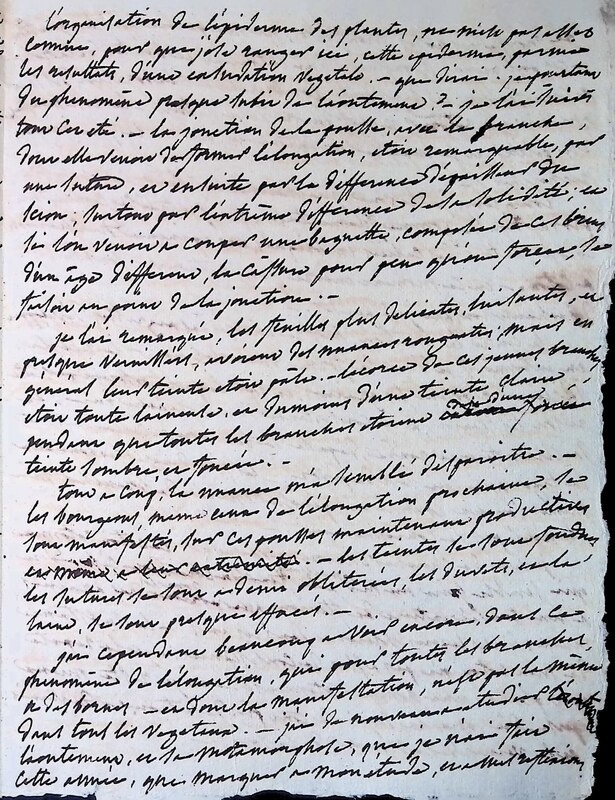 l'organisation de l'épiderme des plantes, ne m'est pas assez
connue, pour que j'ose ranger ici, cette épiderme parmi
les résultats, d'une exhudation végétale. — que dirai-je pourtant
du phénomène presque subit de l'aoutement ? — je l'ai suivi
tout cet été. — la jonction de la pousse, avec la branche,
dont elle venoit de former l'élongation, étoit remarquable, par
une suture, et ensuite par la différence d'épaisseur du
scion; surtout par l'extrême différence de la solidité; et
si l'on venoit a couper une baguette, composée de ces brins
d'un âge différent, la cassure pour peu qu'on forcat, se
faisoit au point de la jonction. —
je l'ai remarqué, les feuilles plus délicates, luisantes, et
presque vernissées, avoient des nuances rougeatres; mais en
général leur teinte étoit pâle. — l'écorce de ces jeunes branches
étoit toute laineuse, et du moins d'une teinte claire
pendant que toutes les branches étoient d'une
teinte sombre et foncée. —
tout a coup, la nuance m'a semblé disparoitre. —
les bourgeons, même ceux de l'élongation prochaine, se
sont manifestés, sur ces pousses maintenant productrices
et même a leur extrémité. — les teintes se sont fondues
les sutures se sont a demi oblitérées, les duvets, et la
laine, se sont presque effacés. —
j'ai cependant beaucoup a voir encore, dans ce
phénomène de l'élongation, qui pour toutes les branches,
a des bornes — et dont la manifestation, n'est pas la même
dans tous les végétaux. — j'ai de nouveau a étudier
l'aoutement, et la métamorphose, que je n'ai fait
cette année, que marquer a mon étude, et a mes réflexions